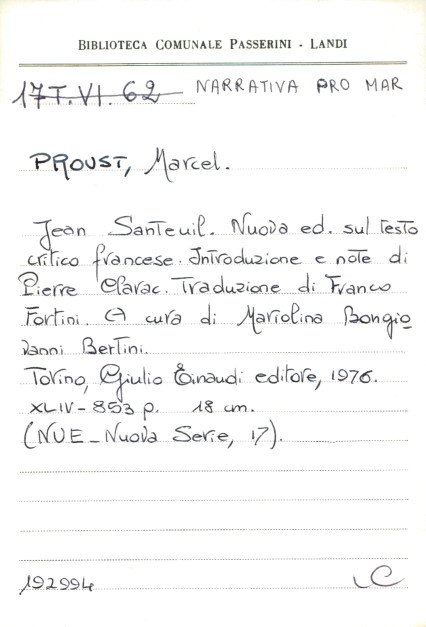 BIBLIOTECA COMUNALE PASSERINI - LANDI
17T.VI.62 NARRATIVA PRO MAR
PROUST, Marcel.
Jean Santeuil. Nuova ed. sul testo
critico francese. Introduzione e note di
Pierre Clarac. Traduzione di Franco
Fortini. A cura di Mariolina Bongio
vanni Bertini.
Torino, Giulio Einaudi editore, 1976.
XLIV-853 p. 18 cm.
(NUE-Nuova Serie, 17).
192994